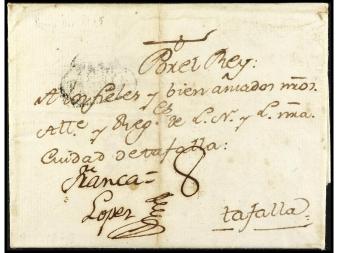 Por el Rey:
A los fieles y bien amados nr̃os.
Alle y Reges de L. N. y L. mã.
Ciudad de tafalla:
franca= 8
Lopez
tafalla: